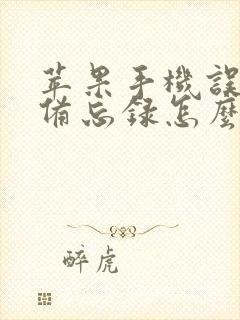 苹果手機誤
備忘録怎麼
醉虎